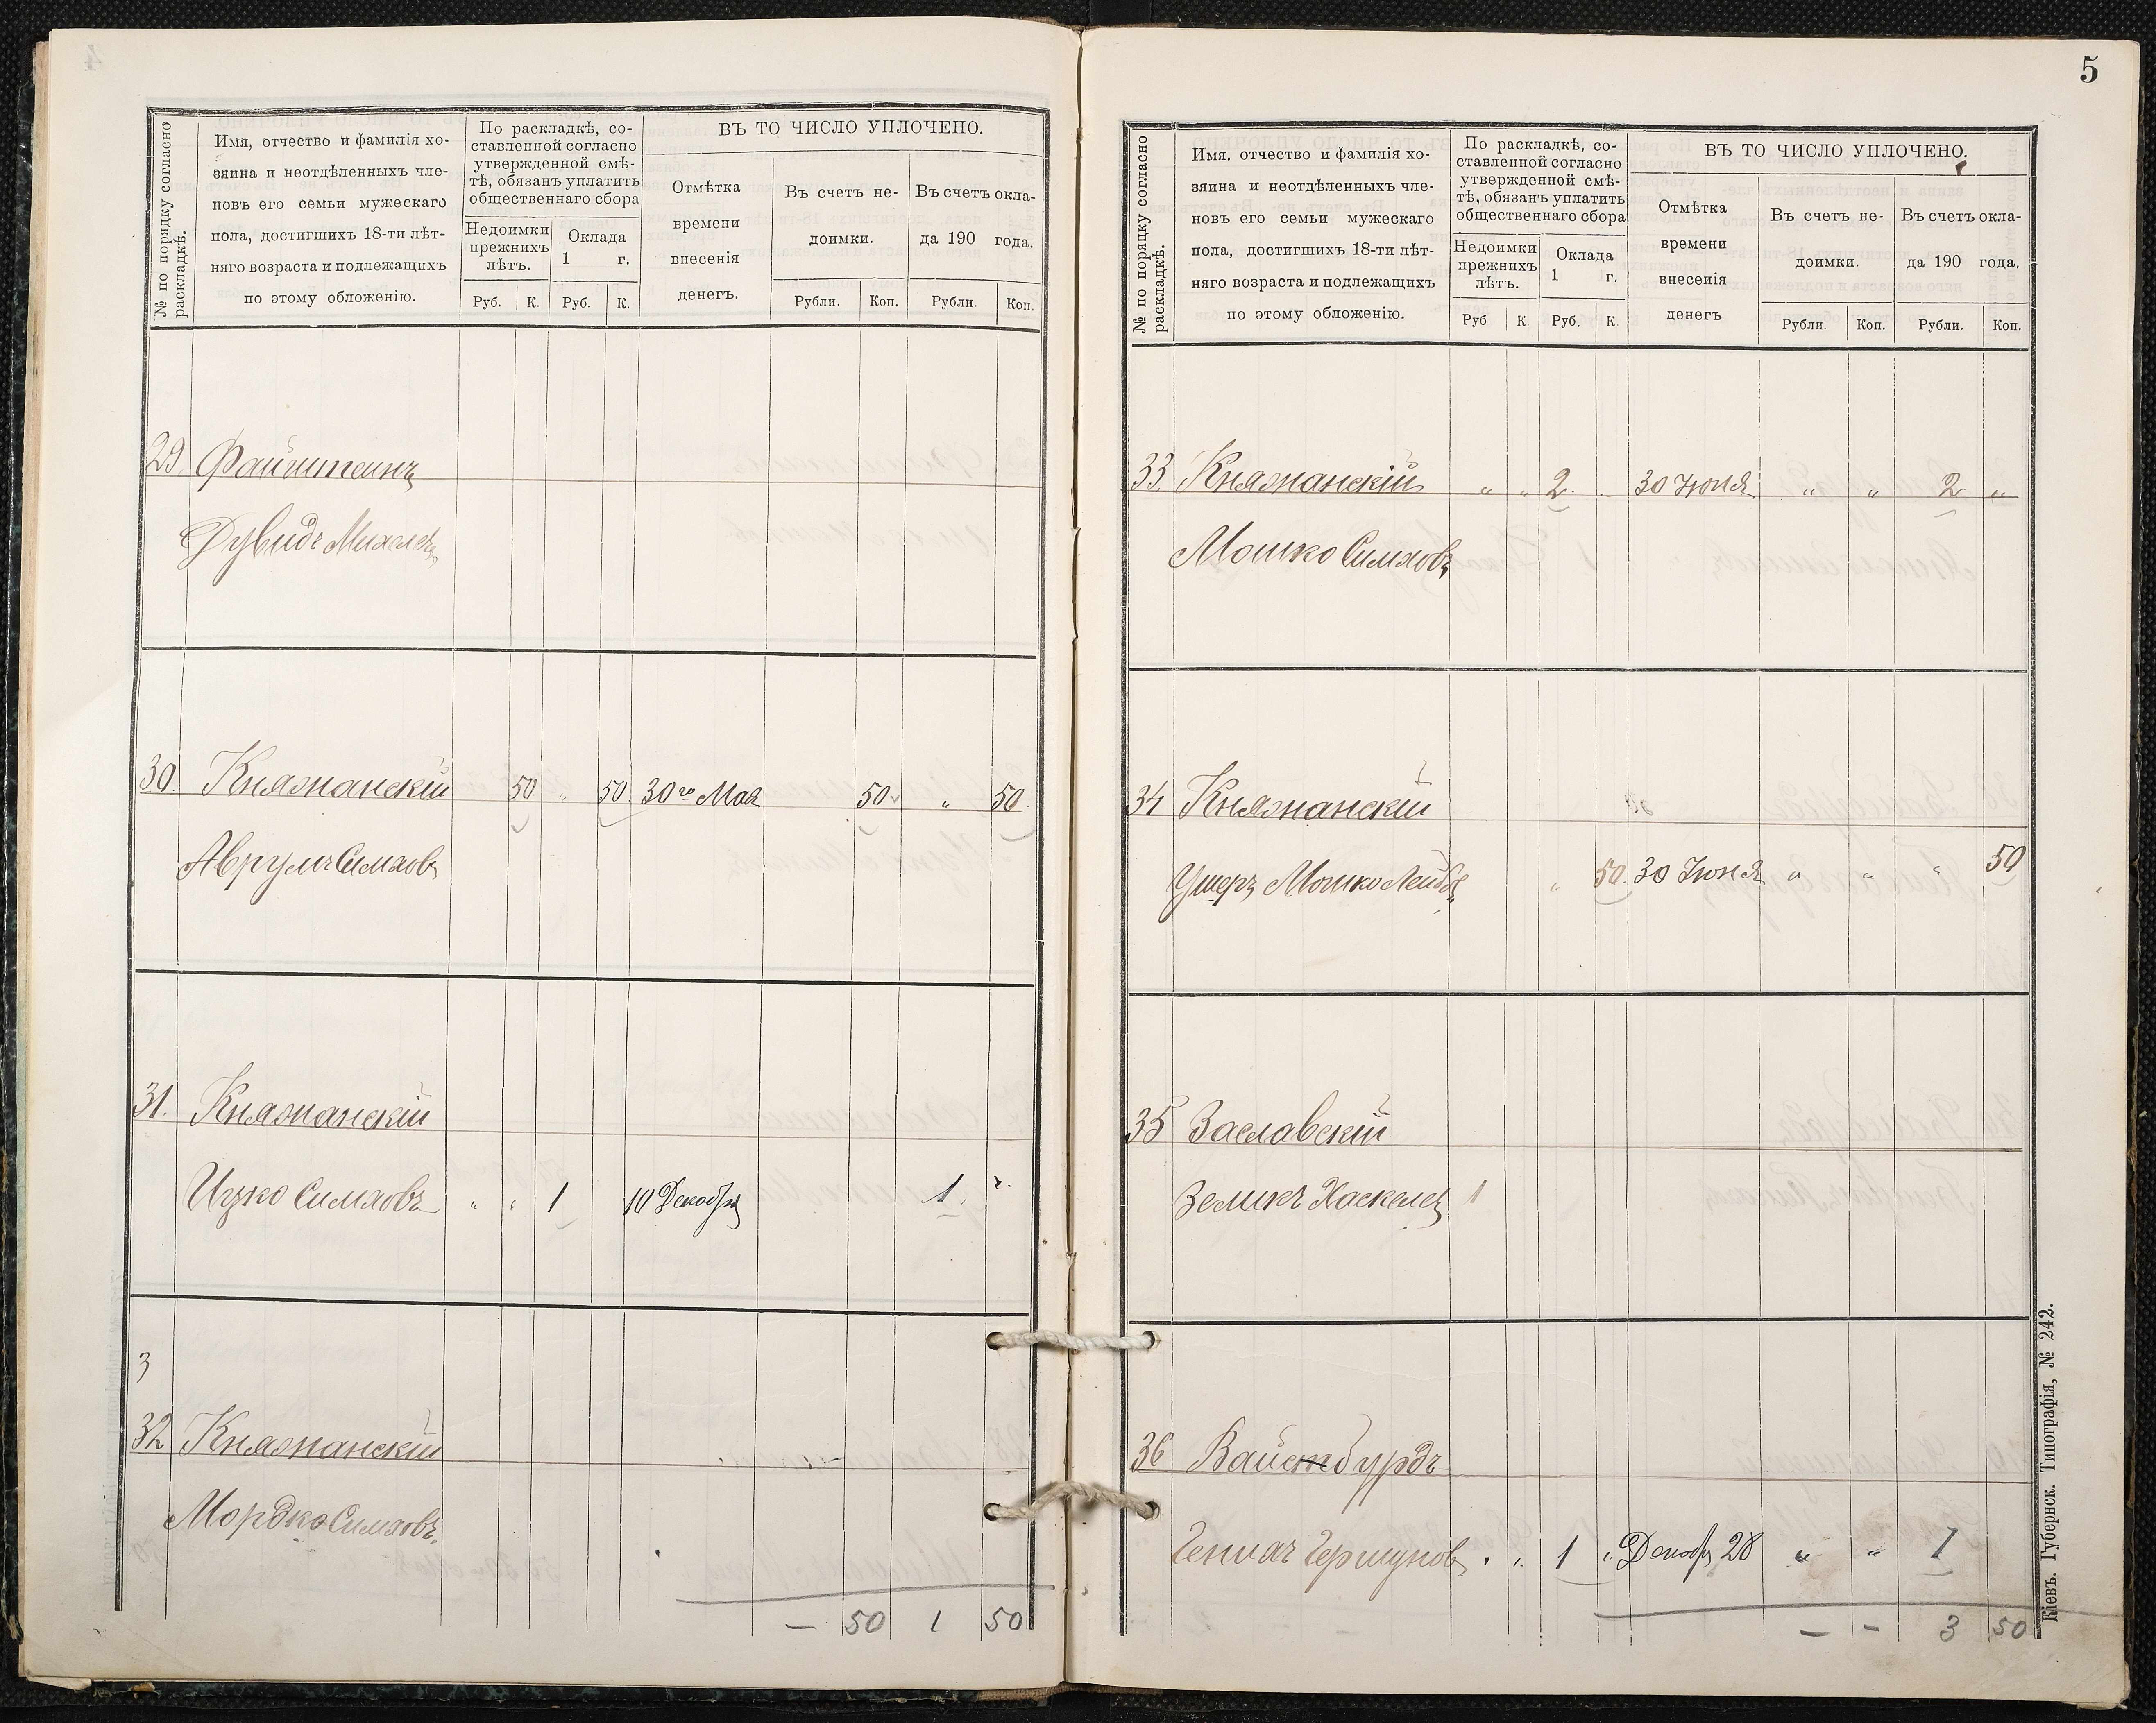 № по порядку согласно
раскладкѣ.
Имя, отчество и фамилія хо-
зяина и неотдѣленныхъ чле-
новъ его семьи мужескаго
пола, достигшихъ 18-ти лѣт-
няго возраста и подлежащихъ
по этому обложенію.
По раскладкѣ, со-
ставленной согласно
утвержденной смѣ-
тѣ, обязанъ уплатить
общественнаго сбора
Недоимки
прежнихъ
лѣтъ.
Оклада
1 г.
Руб. К. Руб. К.
ВЪ ТО ЧИСЛО УПЛОЧЕНО.
Отмѣтка
времени
внесенія
денегъ.
Въ счетъ не-
доимки.
Въ счетъ окла-
да 190 года.
Рубли. Коп. Рубли. Коп.
29 Файнштейнъ
Дувидъ Михелевъ
30. Княжанскій 50 „ 50 30го Мая 50 „ 50
Аврумъ Симховъ
31. Княжанскій
Ицко Симховъ „ „ 1 10 Декабря 1
3
32 Княжанскій
Мордко Симховъ
— 50 1 50
5
№ по порядку согласно
раскладкѣ.
Имя, отчество и фамилія хо-
зяина и неотдѣленныхъ чле-
новъ его семьи мужескаго
пола, достигшихъ 18-ти лѣт-
няго возраста и подлежащихъ
по этому обложенію.
По раскладкѣ, со-
ставленной согласно
утвержденной смѣ-
тѣ, обязанъ уплатить
общественнаго сбора
Недоимки
прежнихъ
лѣтъ.
Оклада
1 г.
Руб К. Руб. К.
ВЪ ТО ЧИСЛО УПЛОЧЕНО.
Отмѣтка
времени
внесенія
денегъ
Въ счетъ не-
доимки.
Въ счетъ окла-
да 190 года.
Рубли. Коп. Рубли. Коп.
33. Княжанскій „ „ 2 30 Іюня „ „ 2 „
Мошко Симховъ
34 Княжанскій
Ушеръ Мошко Лейбовъ „ 50 30 Іюня „ „ „ 50
35 Заславскій
Зеликъ Хаскелев 1
36 Вайсбурдъ
Генихъ Гершуновъ „ „ 1 „ Декабр 28 „ „ 1
— - 3 50
Кіевъ. Губернск. Типографія, № 242.